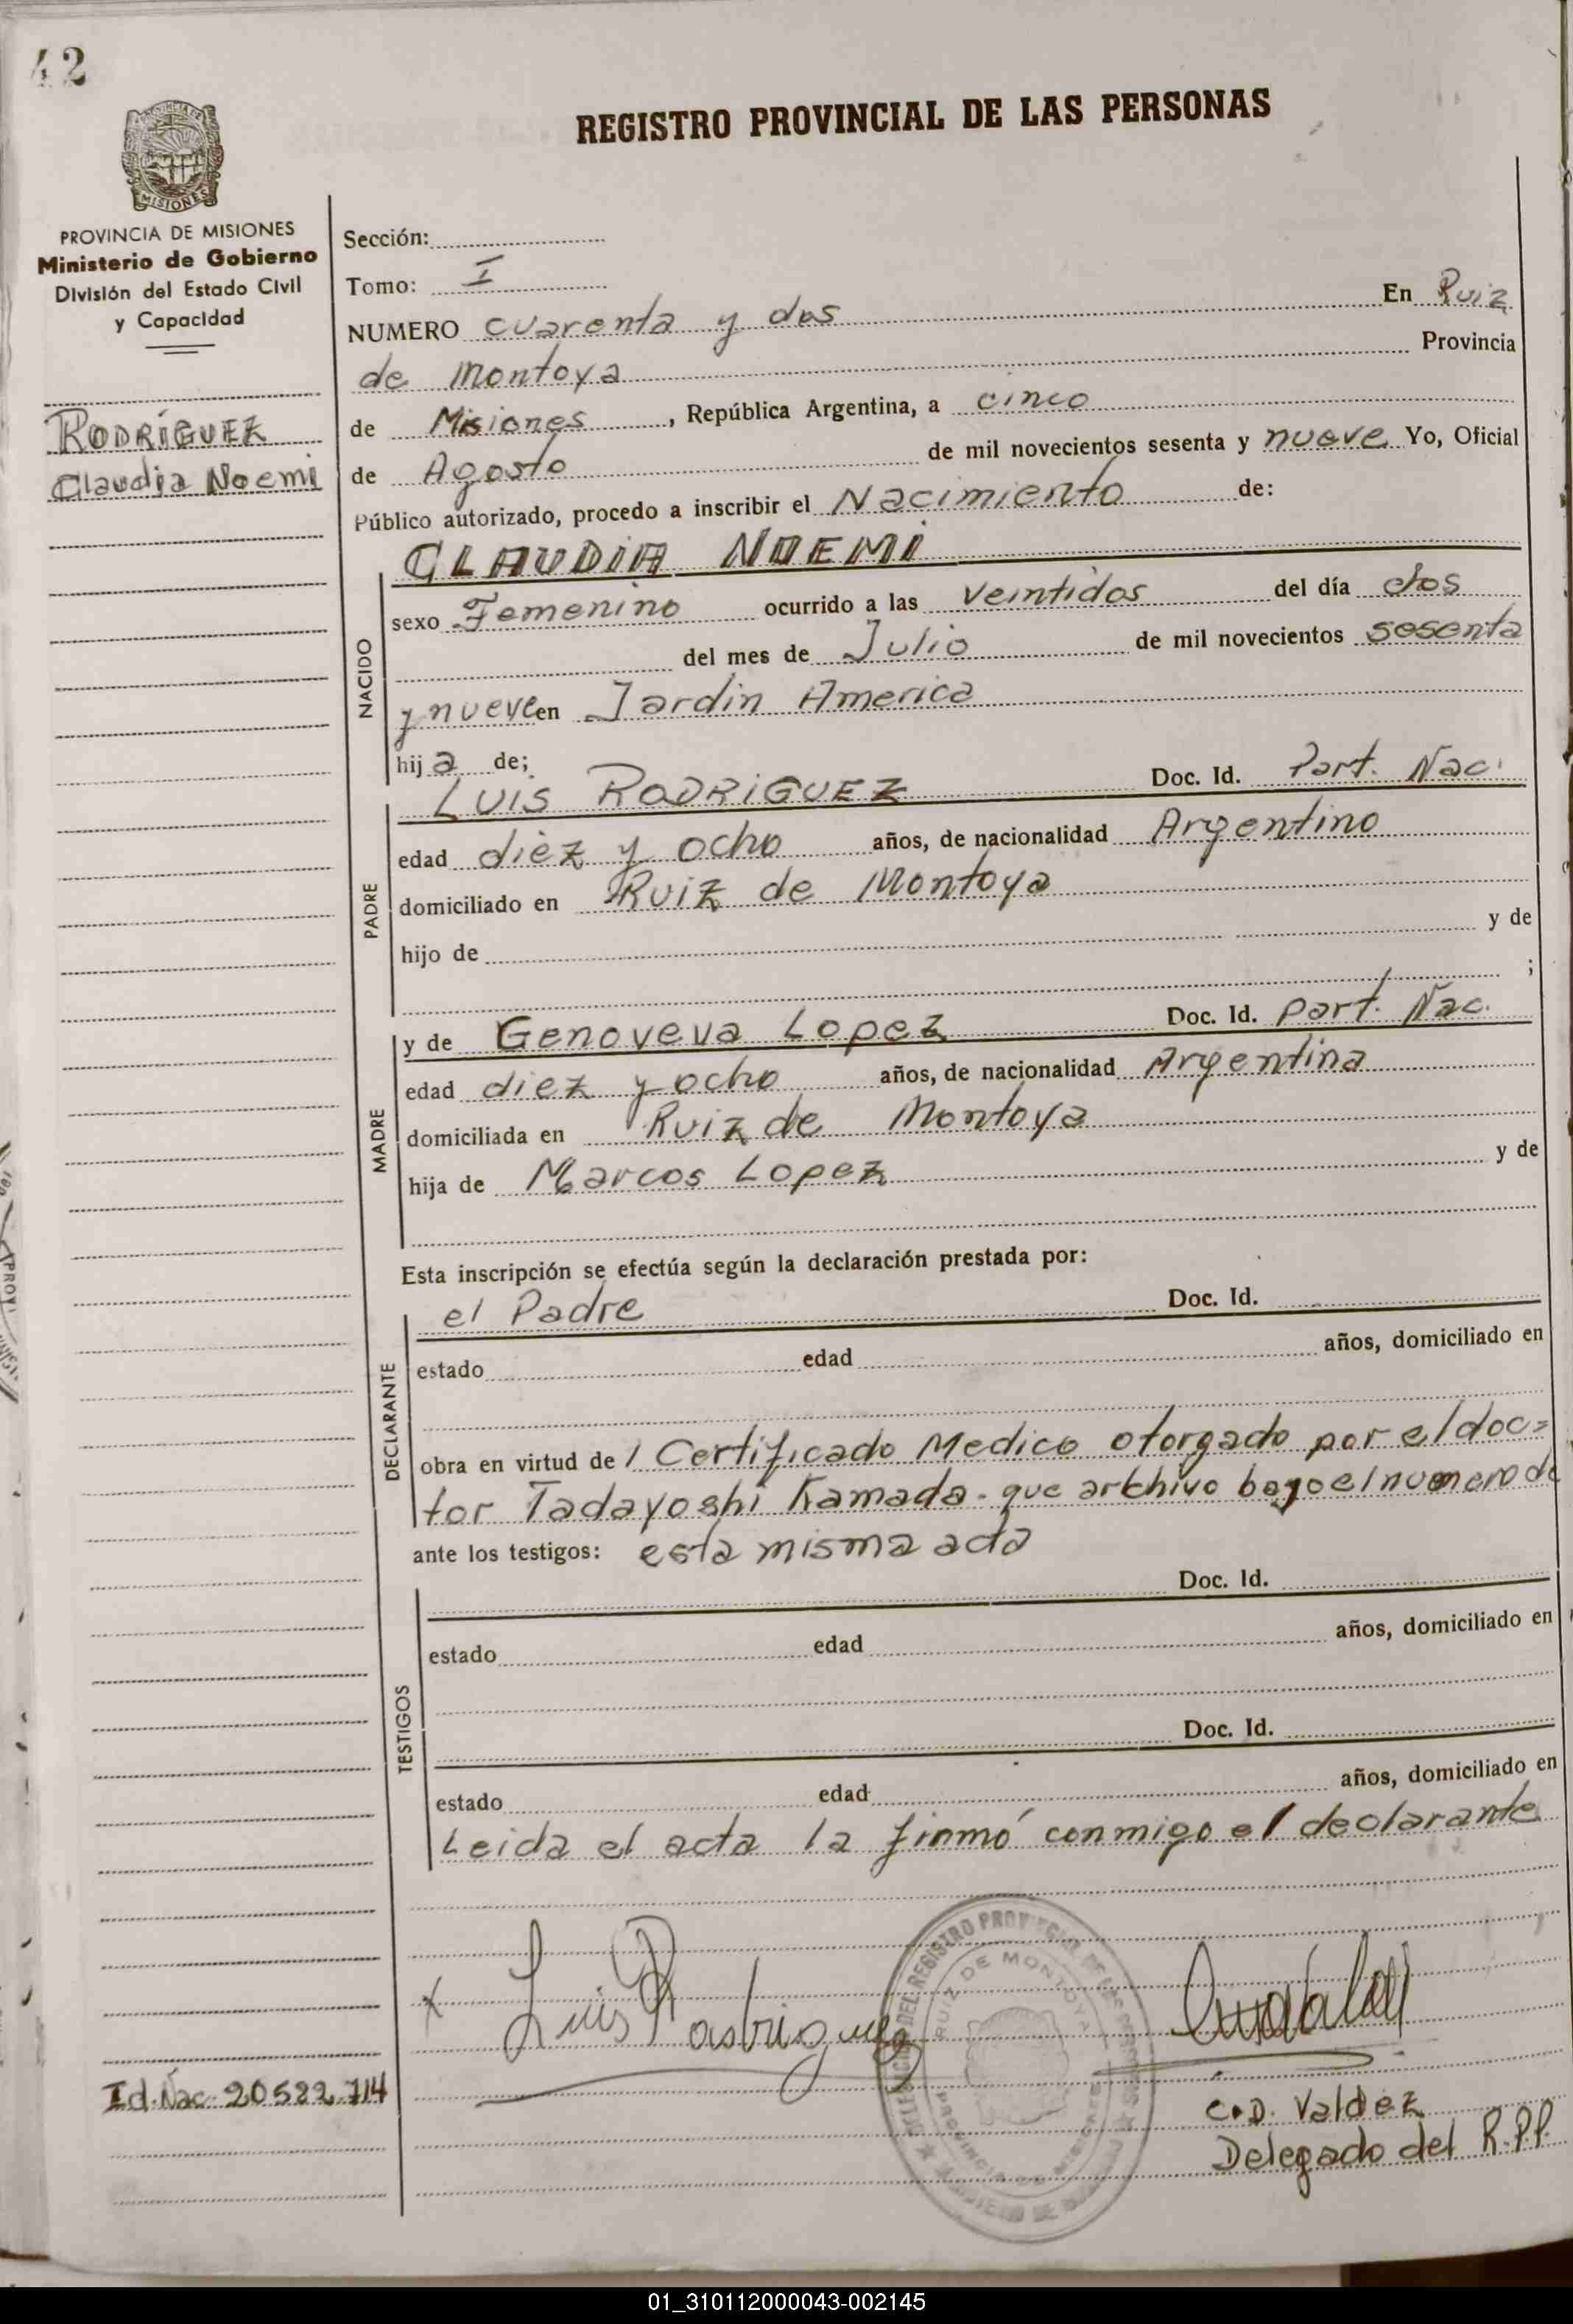 42
REGISTRO PROVINCIAL DE LAS PERSONAS
MISIONES
PROVINCIA DE MISIONES
Ministerio de Gobierno
División del Estado Civil
y Capacidad
RODRÍGUEZ
Claudia Noemi
Sección:
Tomo: I
NUMERO cuarenta y dos En Ruiz
de Montoya Provincia
de Misiones, República Argentina, a cinco
de Agosto de mil novecientos sesenta y nueve Yo, Oficial
Público autorizado, procedo a inscribir el Nacimiento de:
NACIDO
CLAUDIA NOEMI
sexo Femenino ocurrido a las veintidos del día dos
del mes de Julio de mil novecientos sesenta
y nueve en Jardin America
hija de;
PADRE
LUIS RODRIGUEZ Doc. Id. Part. Nac.
edad diez y ocho años, de nacionalidad Argentino
domiciliado en Ruiz de Montoya
hijo de y de
;
MADRE
y de Genoveva Lopez Doc. Id. Part. Nac.
edad diez y ocho años, de nacionalidad Argentina
domiciliada en Ruiz de Montoya
hija de Marcos Lopez y de
Esta inscripción se efectúa según la declaración prestada por:
DECLARANTE
el Padre Doc. Id.
estado edad años, domiciliado en
obra en virtud de l Certificado Medico otorgado por el doc=
tor Tadayoshi Kamada- que archivo bajo el numero de
ante los testigos: esta misma acta
TESTIGOS
Doc. Id.
estado edad años, domiciliado en
Doc. Id.
estado edad años, domiciliado en
Leida el acta la firmó conmigo el declarante
x Luis Rodriguez
DEL REGISTRO PROVINCIAL DE LAS PERSONAS
RUIZ DE MONTOYA
PROVINCIA DE MISIONES
MINISTERIO DE
Id. Nac. 20522.714
C.D. Valdez
Delegado del R.P.P.
01_310112000043-002145